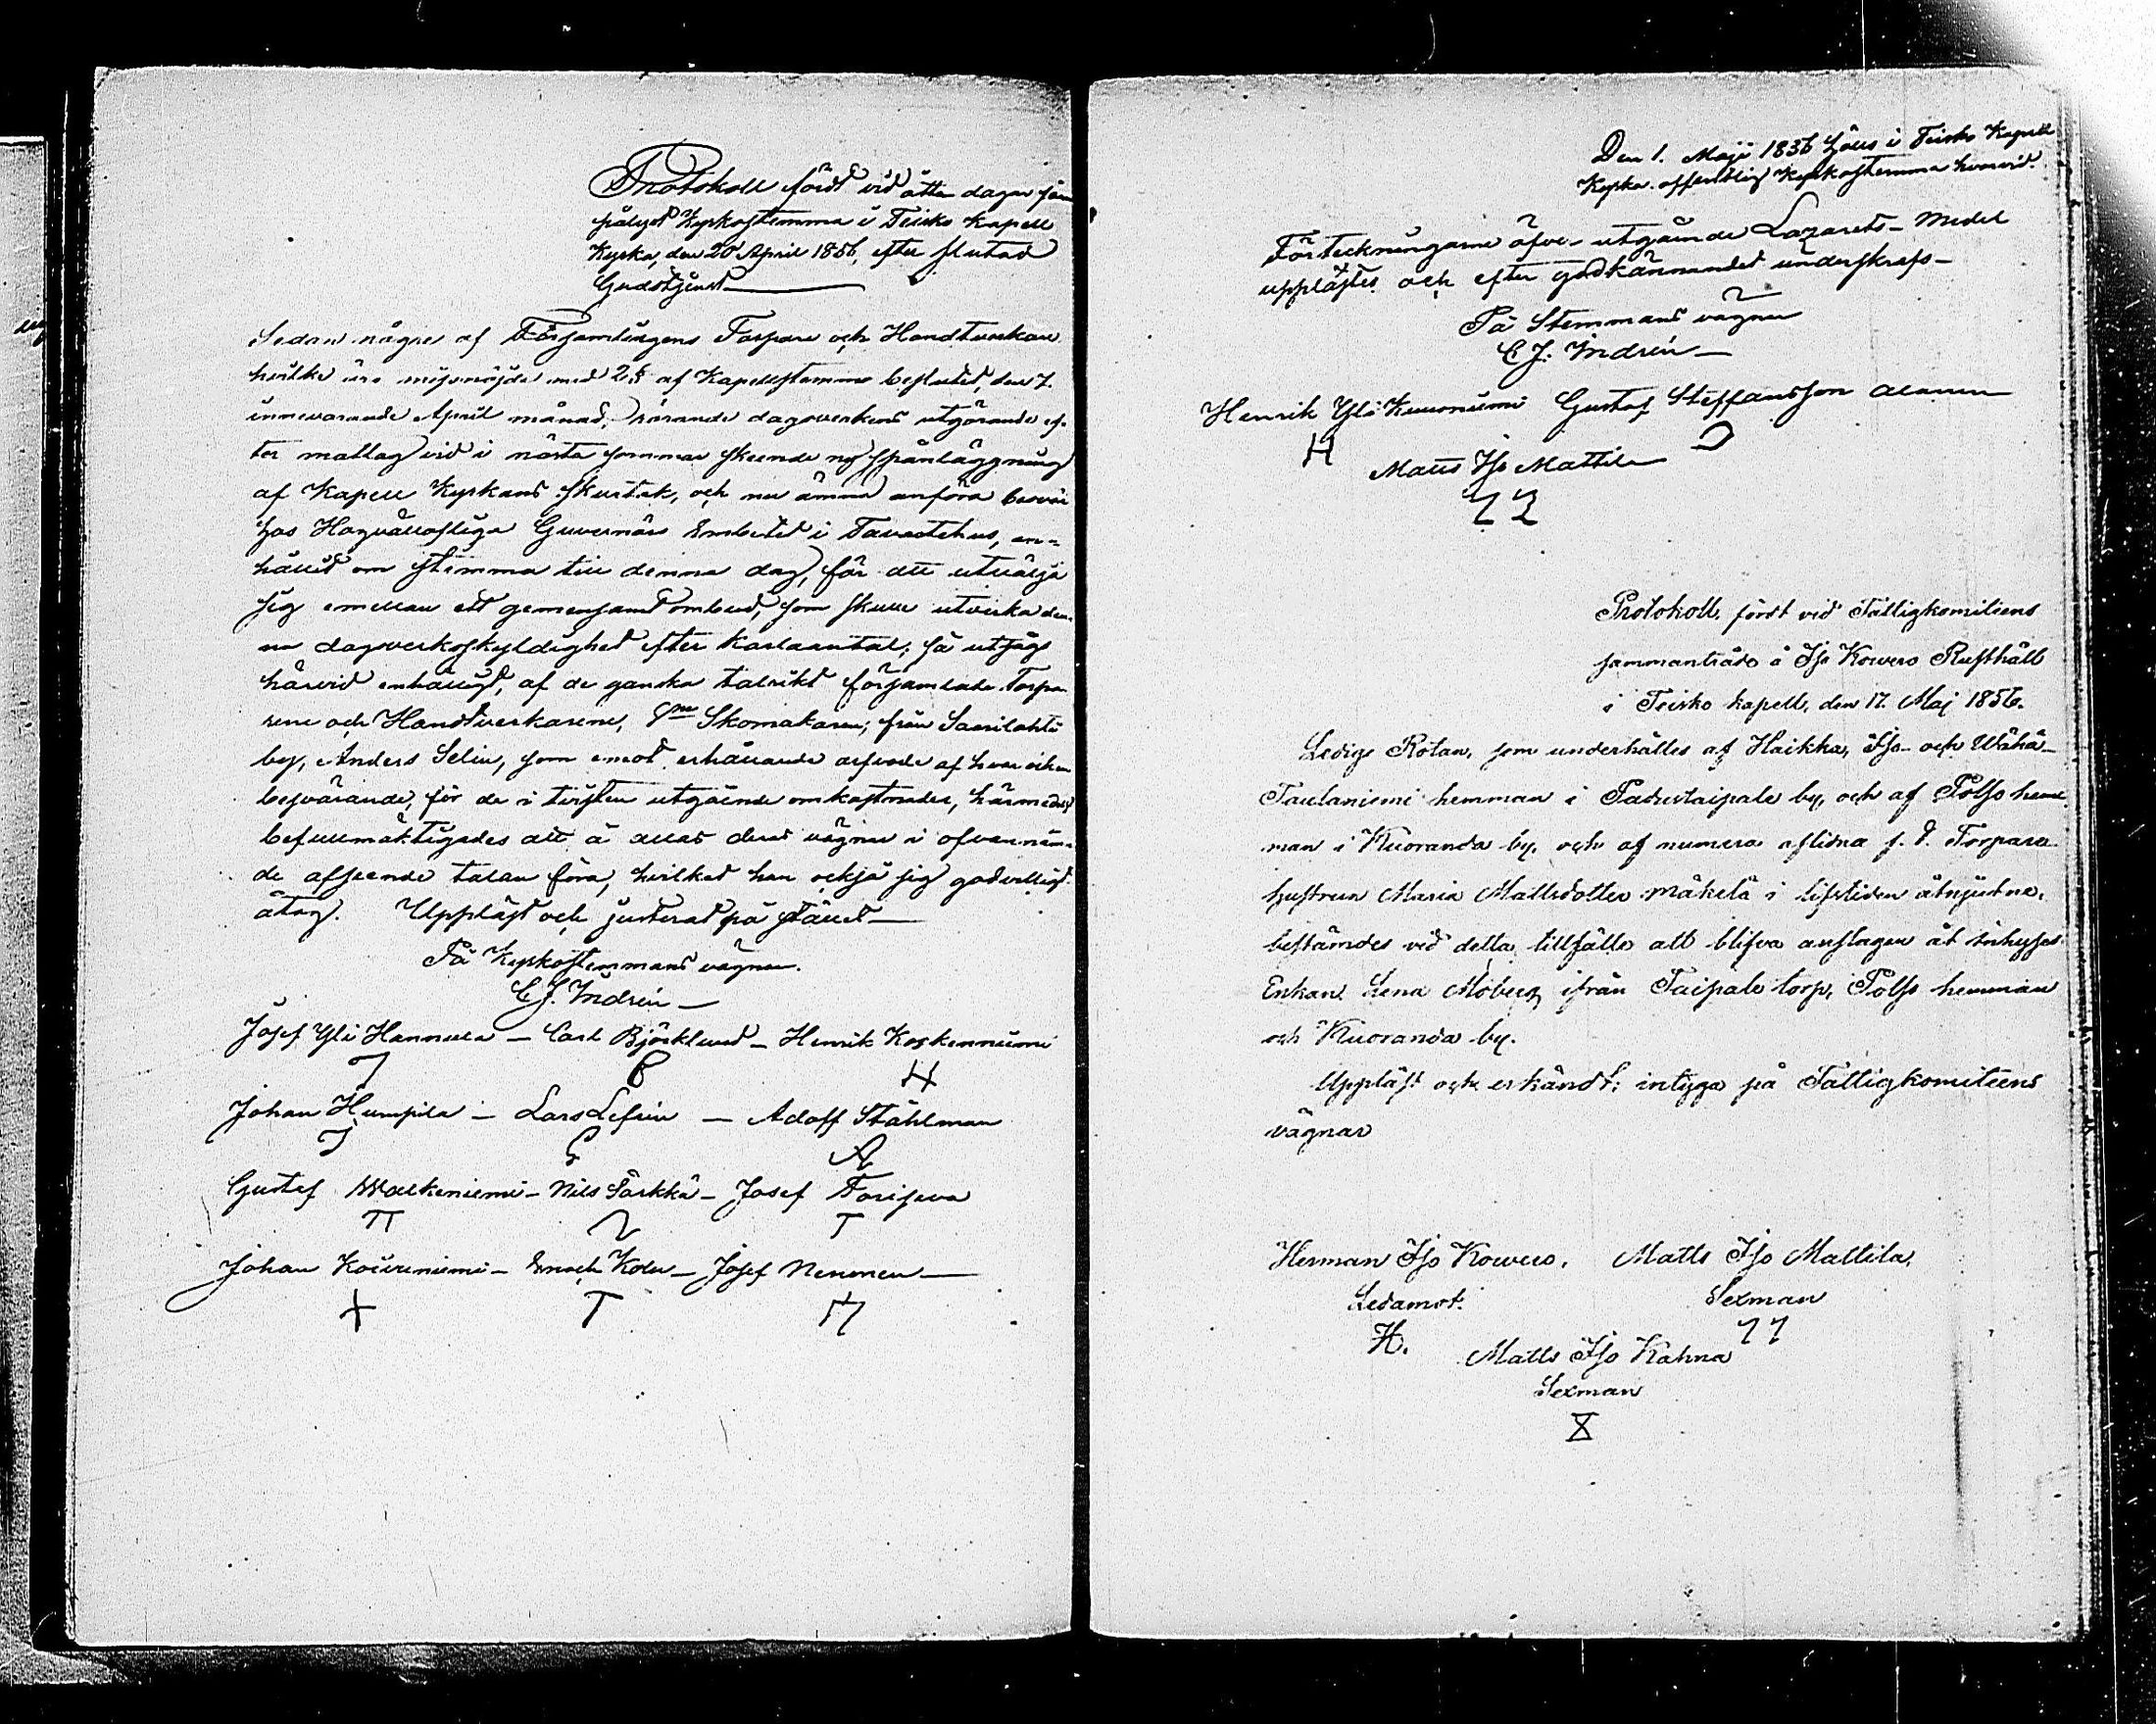 Protokoll fördt vid åtta dagar för
pålyst Kyrkostemma i Teisko Kapell
Kyrka, den 20 April 1856, efter slutad
Gudstjenst
Sedan någre af Församlingens Torpare och Handtverkare
hvilke äro missnöjde med 2 § af Kapellstemmo beslutet, den 7.
innevarande April månad, rörande dagsverkens utgörande ef-
ter matlag vid i nästa sommar skeende ny spånläggning
af Kapell Kyrkans skurtak, och nu ämna anföra besvär
hos Högvällofliga Guvernörs Embetet i Tavastehus, an-
hållit om stemma till denna dag, för att utvälja
sig emellan ett gemensamt ombud, som skulle utverka den-
na dagsverksskyldighet efter karlaantal; så utsågs
härvid enhälligt, af de ganska talrikt församlade Torpa-
rene och Handtverkarene, Skomakaren, från Saarilahti
by, Anders Selin, som emot erhållande arfvode af hvar och en
besvärande, för de i tvisten utgående omkostnader, härmedelst
befullmäktigades att å allas deras vägnar i ofvannäm-
de afseende talan föra, hvilket han ock så sig godvilligt
åtog. Uppläst och justerat på stället
På Kyrkostemmans vägnar.
C. J. Indrén
Josef Yli Hannula - Carl Björklund - Henrik Koskenniemi
Johan Humpila - Lars Lefrin - Adolf Ståhlman
Gustaf Walkeniemi - Nils Särkkä - Josef Torisewa
Johan Koivuniemi - Enoch Kolu - Josef Nenonen
Den 1. Maji 1856 hölls i Teisko Kapell
Kyrka offentlig Kyrkostemma hvarvid
Förteckningarne öfver utgående Lazarets-Medel
upplästes och efter godkännandet underskrefs
På Stemmans vägnar
C. J. Indrén
Henrik Yli Kuusniemi Gustaf Steffansson Alanen
H
Matts Iso Mattila
Protokoll, fördt vid Fattigkomiteens
sammanträde å Iso Kowero Rusthåll
i Teisko kapell, den 17. Maj 1856.
Lediga Rotan, som underhålles af Haikka, Iso- och Wähä-
Taulaniemi hemman i Padustaipale by, och af Polso hem-
man i Kuoranda by, och af numera aflidna f. d. Torpare-
hustrun Maria Mattsdotter Mäkelä i lifstiden åtnjutne,
bestämdes vid detta tillfälle att blifva anslagen åt inhyses
Enkan Lena Moberg ifrån Taipale torp, Polso hemman
och Kuoranda by.
Uppläst och erkändt; intyga på Fattigkomiteens
vägnar
Herman Iso Kowero, Matts Iso Mattila,
Ledamot. Sexman
H.
Matts Iso Kahna
Sexman